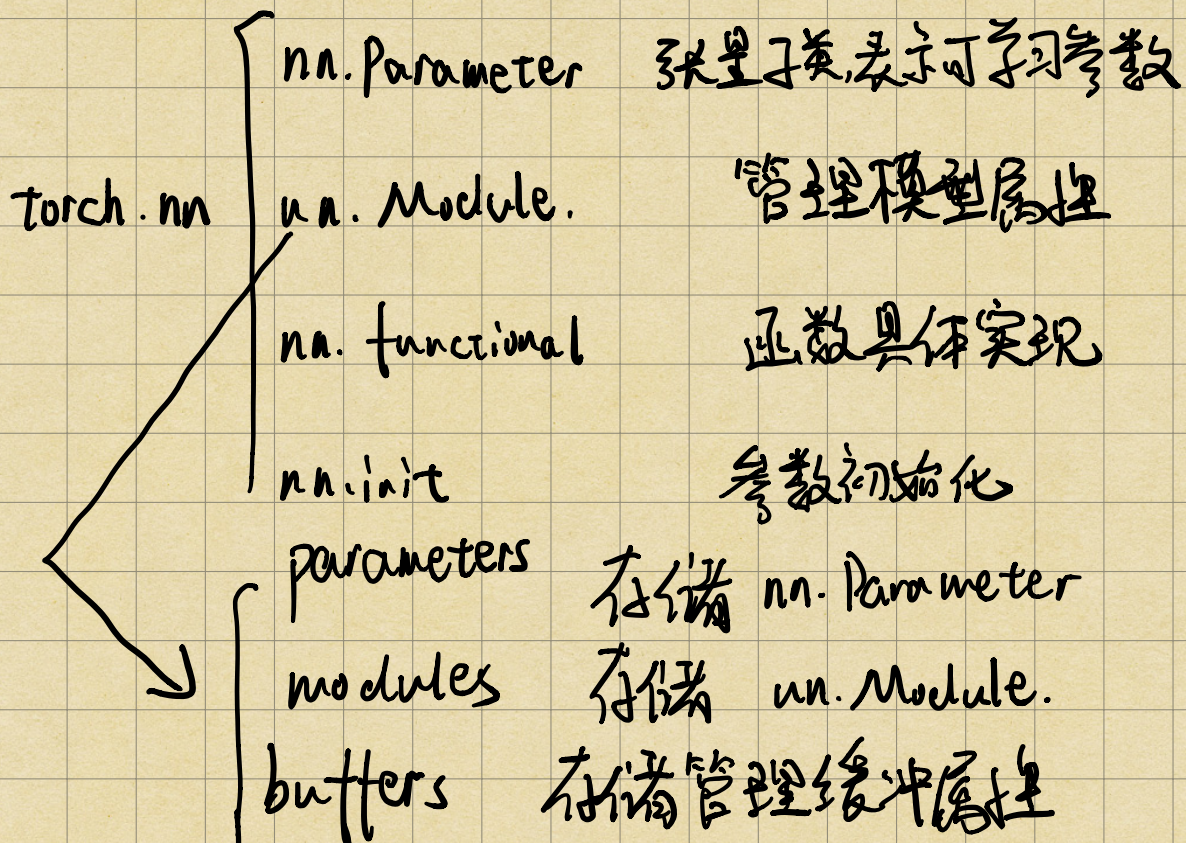 nn.Parameter 张量子类,表示可学习参数
torch.nn nn.Module. 管理模型属性
nn.functional 函数具体实现
nn.init 参数初始化
parameters 存储 nn.Parameter
modules 存储 nn.Module.
buffers 存储管理缓冲属性